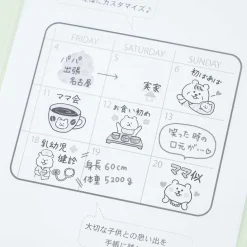 にカスタマイズ♪
FRIDAY
SATURDAY
SUNDAY
4
5
6
パパ
出張
名古屋
→
実家
初はあば
11
12
13
ママ会
お食い初め
笑った時の
口元が…♡
18
19
20
乳幼児
健診
身長60cm
体重5200g
ママ似
大切な子供との思い出を
手帳に